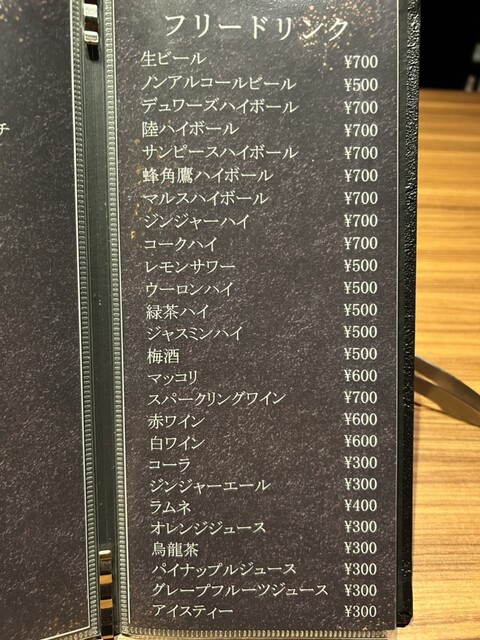 フリードリンク
生ビール ¥700
ノンアルコールビール ¥500
デュワーズハイボール ¥700
陸ハイボール ¥700
サンピースハイボール ¥700
蜂角鷹ハイボール ¥700
マルスハイボール ¥700
ジンジャーハイ ¥700
コークハイ ¥700
レモンサワー ¥500
ウーロンハイ ¥500
緑茶ハイ ¥500
ジャスミンハイ ¥500
梅酒 ¥500
マッコリ ¥600
スパークリングワイン ¥700
赤ワイン ¥600
白ワイン ¥600
コーラ ¥300
ジンジャーエール ¥300
ラムネ ¥400
オレンジジュース ¥300
烏龍茶 ¥300
パイナップルジュース ¥300
グレープフルーツジュース ¥300
アイスティー ¥300
チ